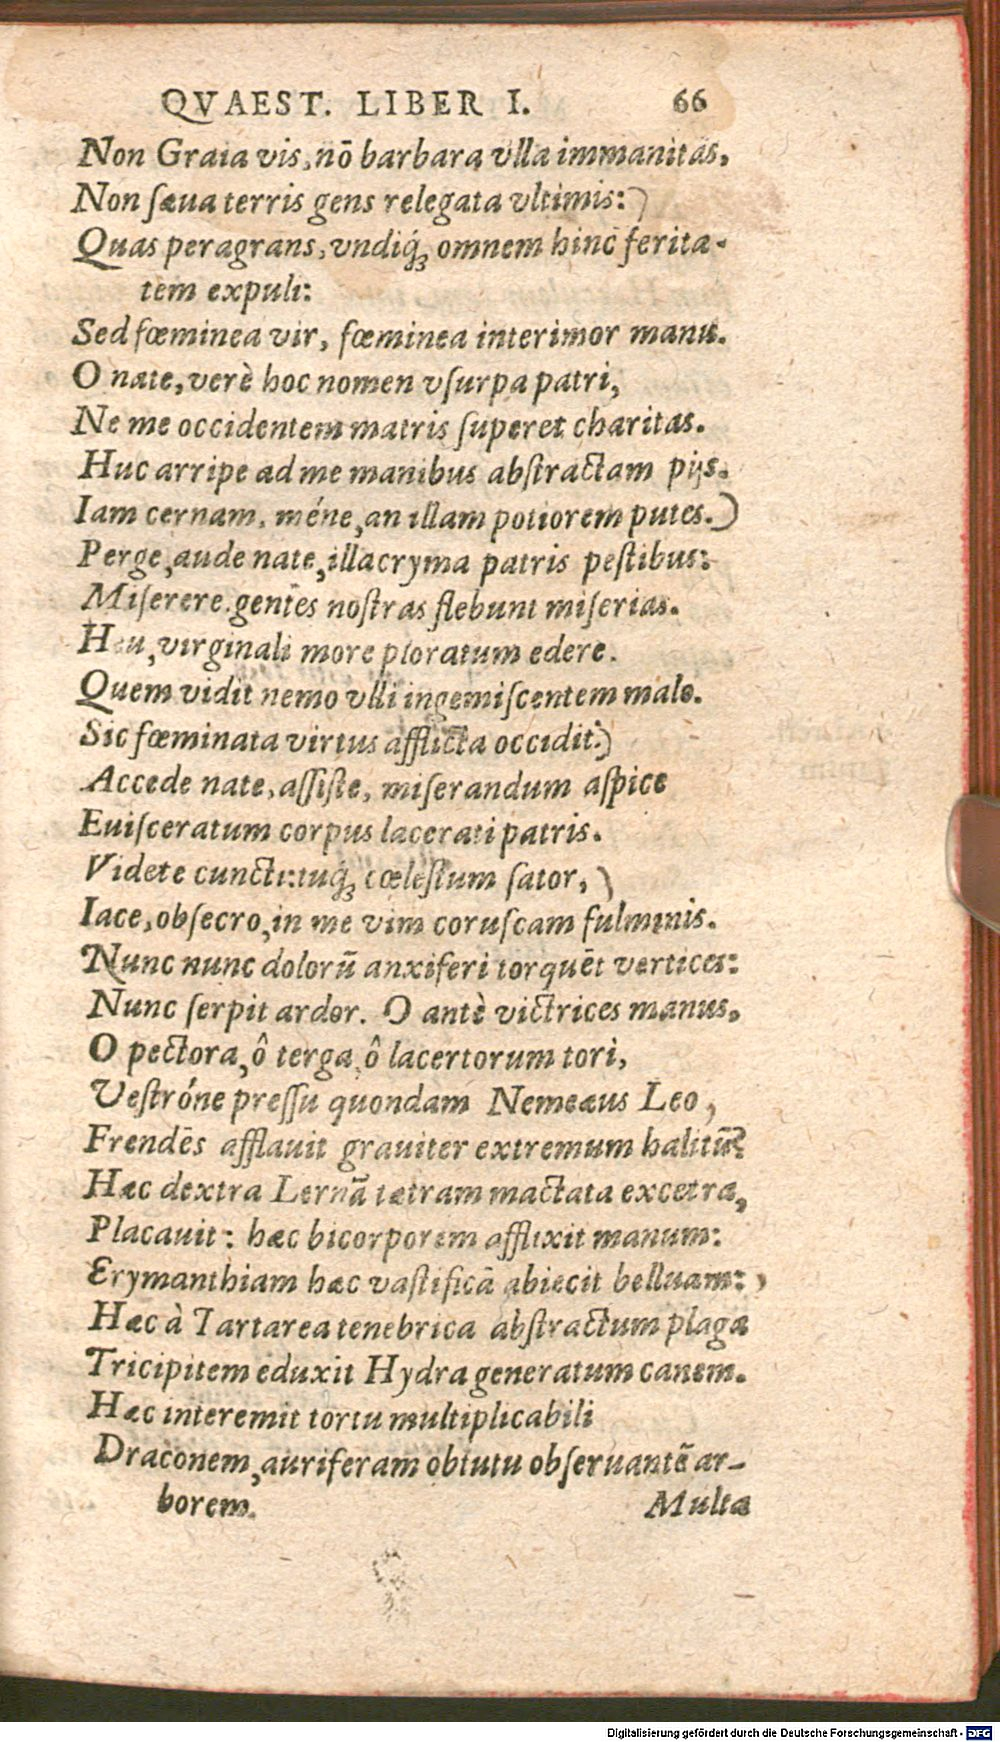 QVAEST. LIBER I. 66
Non Graia vis, nō barbara vlla immanitas,
Non ſæua terris gens relegata vltimis:
Quas peragrans, vndiq́; omnem hinc ferita-
tem expuli:
Sed fœminea vir, fœminea interimor manu.
O nate, verè hoc nomen vſurpa patri,
Ne me occidentem matris ſuperet charitas.
Huc arripe ad me manibus abſtractam pijs.
Iam cernam, méne, an illam potiorem putes.
Perge, aude nate, illacryma patris peſtibus:
Miſerere. gentes noſtras flebunt miſerias.
Heu, virginali more ploratum edere.
Quem vidit nemo vlli ingemiſcentem malo.
Sic fœminata virtus afflicta occidit.
Accede nate, aſſiſte, miſerandum aſpice
Euiſceratum corpus lacerati patris.
Videte cuncti: tuq́; cœleſtum ſator,
Iace, obſecro, in me vim coruſcam fulminis.
Nunc nunc dolorū anxiferi torquēt vertices:
Nunc ſerpit ardor. O antè victrices manus,
O pectora, ô terga, ô lacertorum tori,
Veſtróne preſſu quondam Nemeæus Leo,
Frendēs afflauit grauiter extremum halitū?
Hæc dextra Lernā tætram mactata excetra,
Placauit: hæc bicorporem afflixit manum:
Erymanthiam hæc vaſtificā abiecit belluam:
Hæc à Tartarea tenebrica abſtractum plaga
Tricipitem eduxit Hydra generatum canem.
Hæc interemit tortu multiplicabili
Draconem, auriferam obtutu obſeruantē ar-
borem. Multa
Digitalisierung gefördert durch die Deutsche Forschungsgemeinschaft - DFG